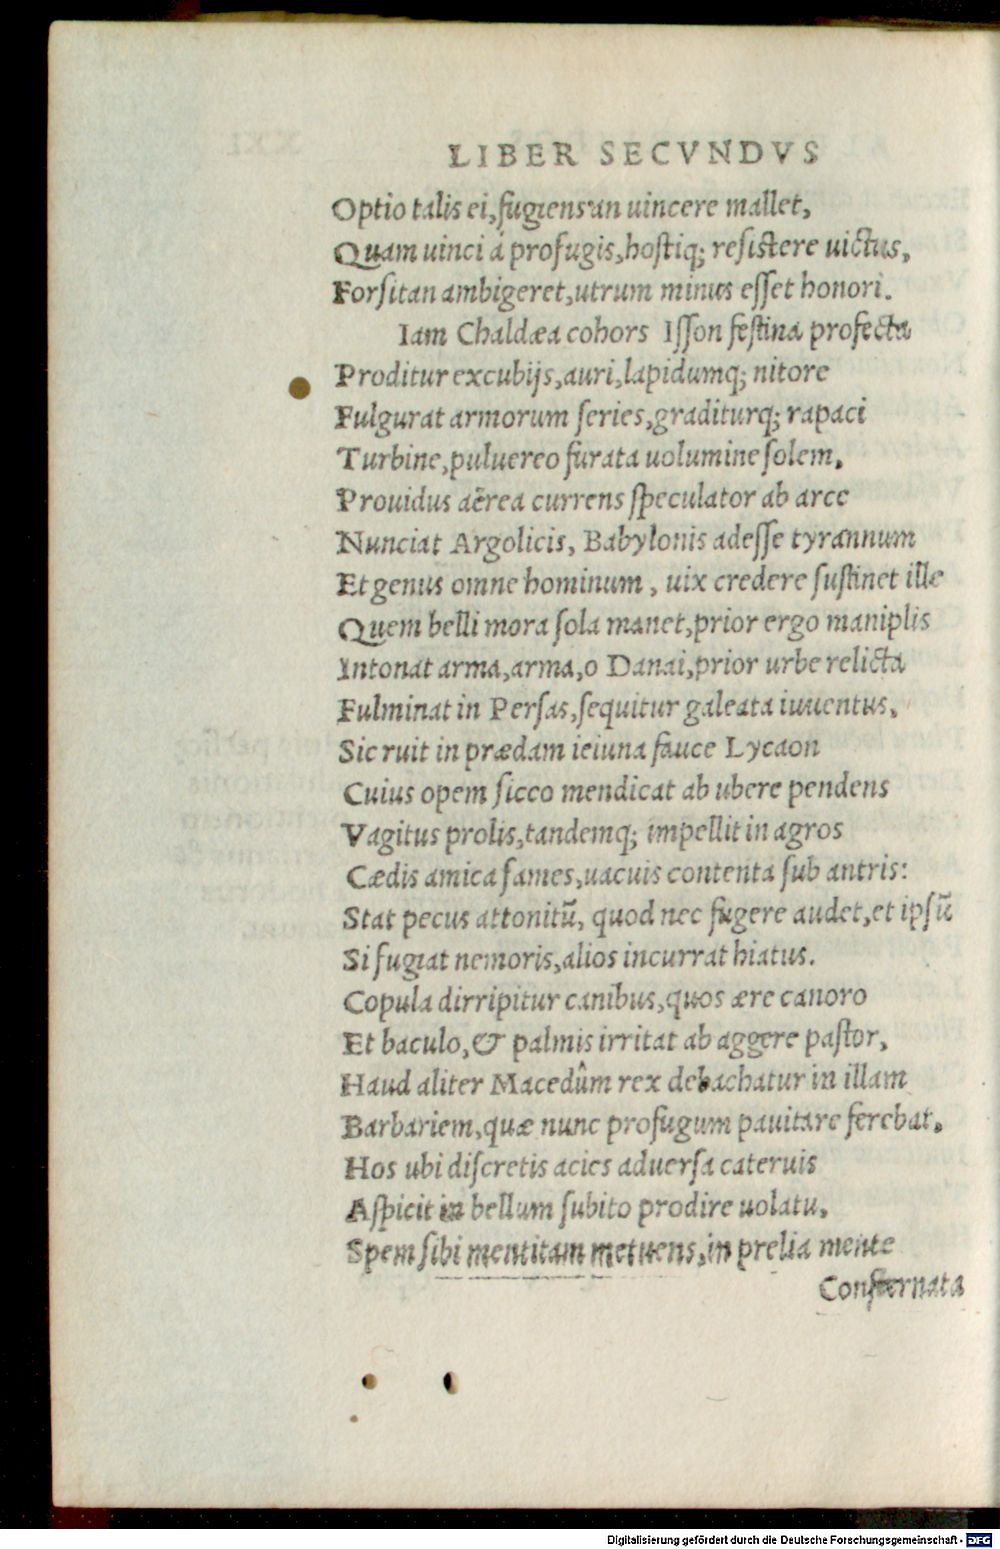 LIBER SECVNDVS
Optio talis ei, fugiens an uincere mallet,
Quam uinci á profugis, hostiq; resistere uictus,
Forsitan ambigeret, utrum minus esset honori.
Iam Chaldæa cohors Isson festina profecta
Proditur excubijs, auri, lapidumq; nitore
Fulgurat armorum series, graditurq; rapaci
Turbine, puluereo furata uolumine solem,
Prouidus aërea currens speculator ab arce
Nunciat Argolicis, Babylonis adesse tyrannum
Et genus omne hominum, uix credere sustinet ille
Quem belli mora sola manet, prior ergo maniplis
Intonat arma, arma, o Danai, prior urbe relicta
Fulminat in Persas, sequitur galeata iuuentus,
Sic ruit in prædam ieiuna fauce Lycaon
Cuius opem sicco mendicat ab ubere pendens
Vagitus prolis, tandemq; impellit in agros
Cædis amica fames, uacuis contenta sub antris:
Stat pecus attonitū, quod nec fugere audet, et ipsū
Si fugiat nemoris, alios incurrat hiatus.
Copula dirripitur canibus, quos ære canoro
Et baculo, & palmis irritat ab aggere pastor,
Haud aliter Macedûm rex debachatur in illam
Barbariem, quæ nunc profugum pauitare ferebat.
Hos ubi discretis acies aduersa cateruis
Aspicit in bellum subito prodire uolatu,
Spem sibi mentitam metuens, in prelia mente
Consternata
Digitalisierung gefördert durch die Deutsche Forschungsgemeinschaft - DFG